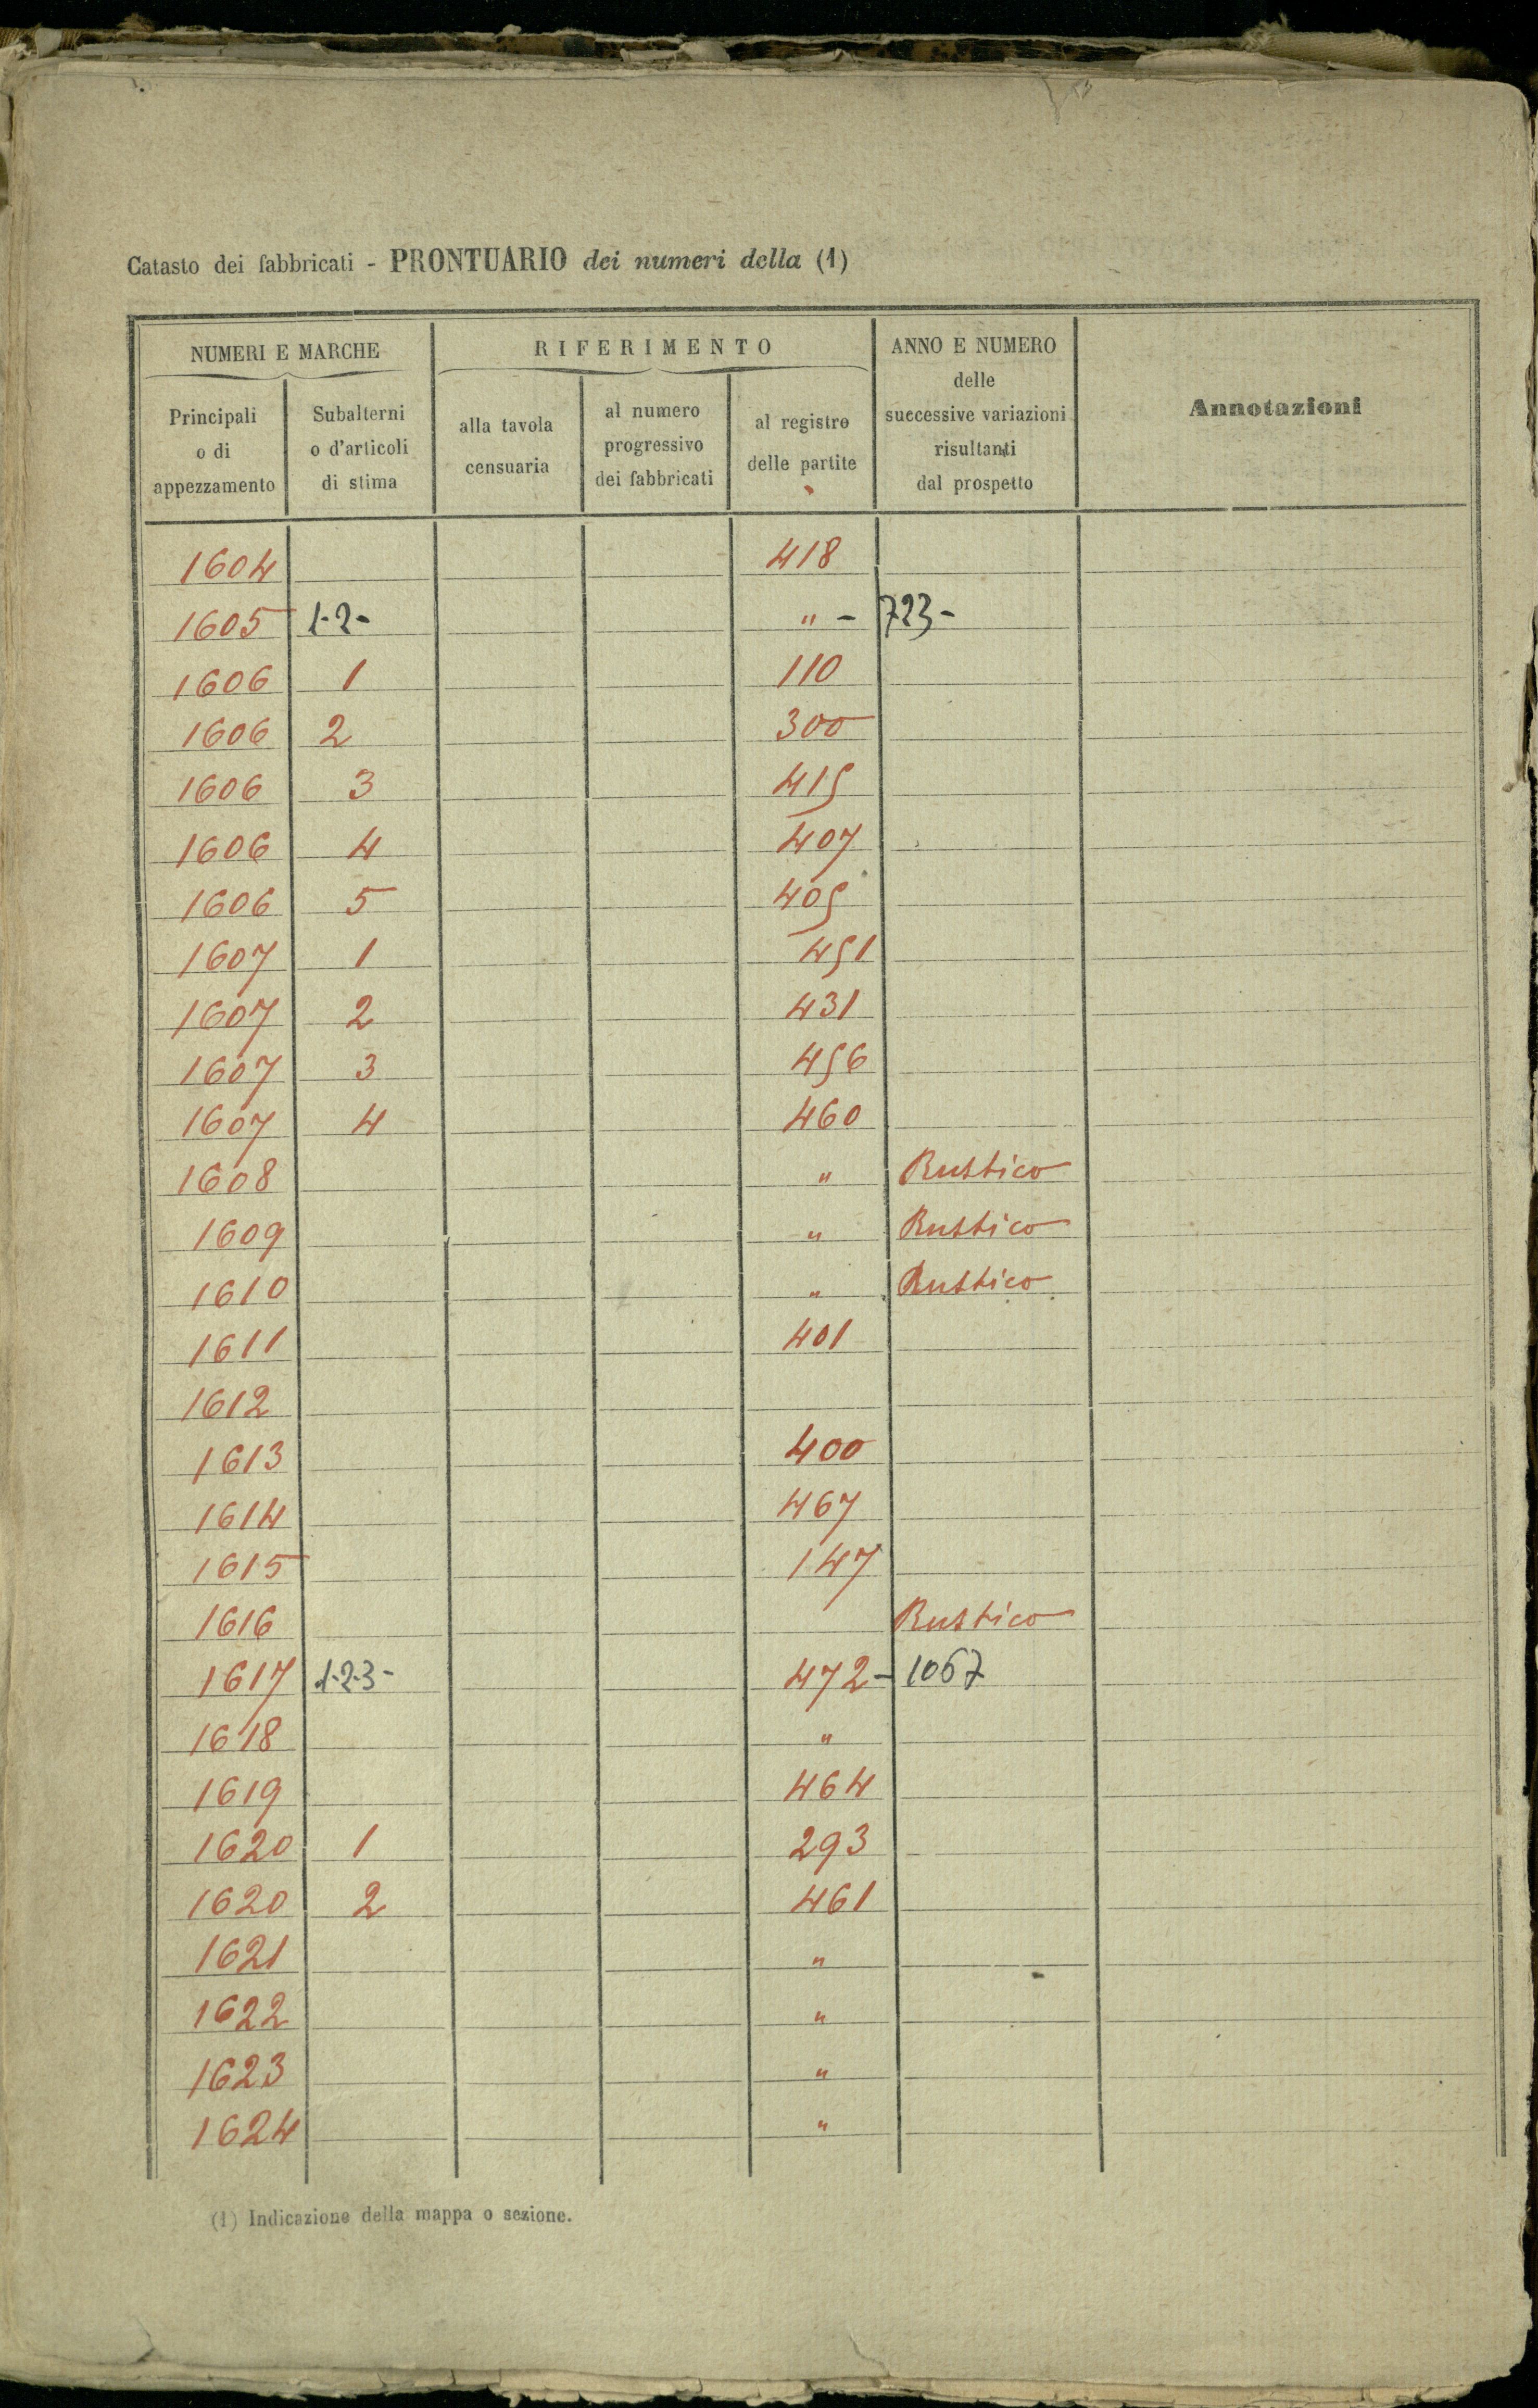 Catasto dei fabbricati - PRONTUARIO dei numeri della (1)
NUMERI E MARCHE
RIFERIMENTO
ANNO E NUMERO
delle
successive variazioni
risultanti
dal prospetto
Annotazioni
Principali
o di
appezzamento
Subalterni
o d'articoli
di stima
alla tavola
censuaria
al numero
progressivo
dei fabbricati
al registro
delle partite
1604 418
1605 1-2- " - 723-
1606 1 110
1606 2 300
1606 3 415
1606 4 407
1606 5 405
1607 1 451
1607 2 431
1607 3 456
1607 4 460
1608 " Rustico
1609 " Rustico
1610 " Rustico
1611 401
1612
1613 400
1614 467
1615 147
1616 Rustico
1617 1-2-3- 472- 1067
1618 "
1619 464
1620 1 293
1620 2 461
1621 "
1622 "
1623 "
1624 "
(1) Indicazione della mappa o sezione.